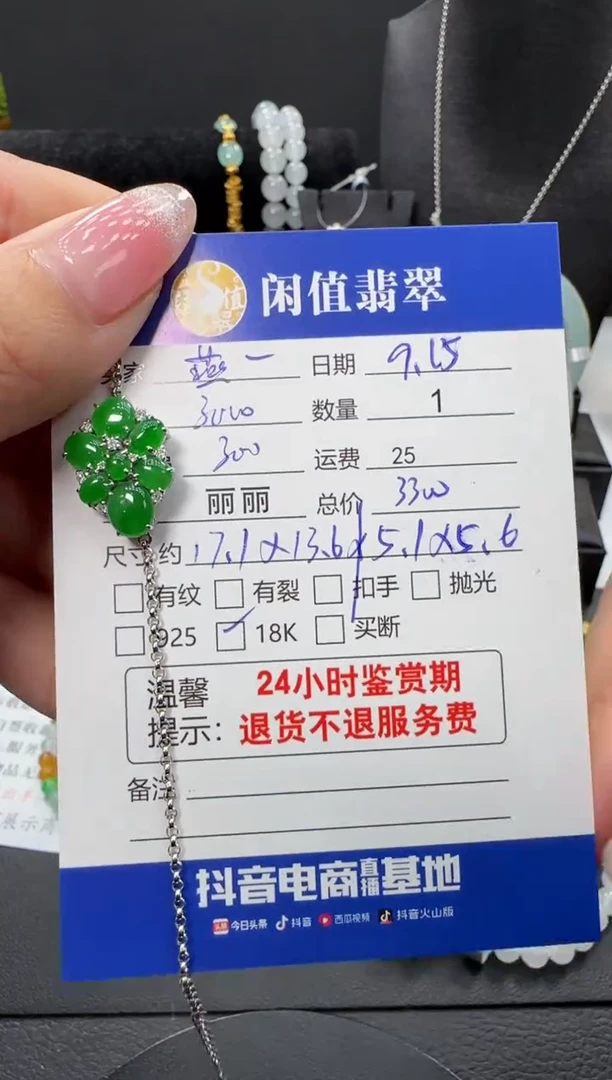 闲值翡翠
家 燕一 日期 9.15
3000 数量 1
300 运费 25
丽丽 总价 3300
尺寸约 17.1×13.6×5.1×5.6
有纹 有裂 扣手 抛光
925 18K 买断
温馨提示: 24小时鉴赏期
退货不退服务费
备注
抖音电商直播基地
头条 今日头条 抖音 西瓜视频 抖音火山版